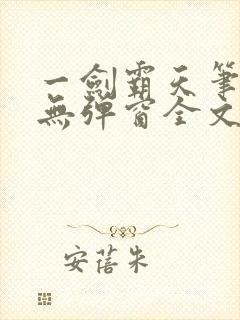 一劍霸天筆
無彈窗全文
安蓓朱